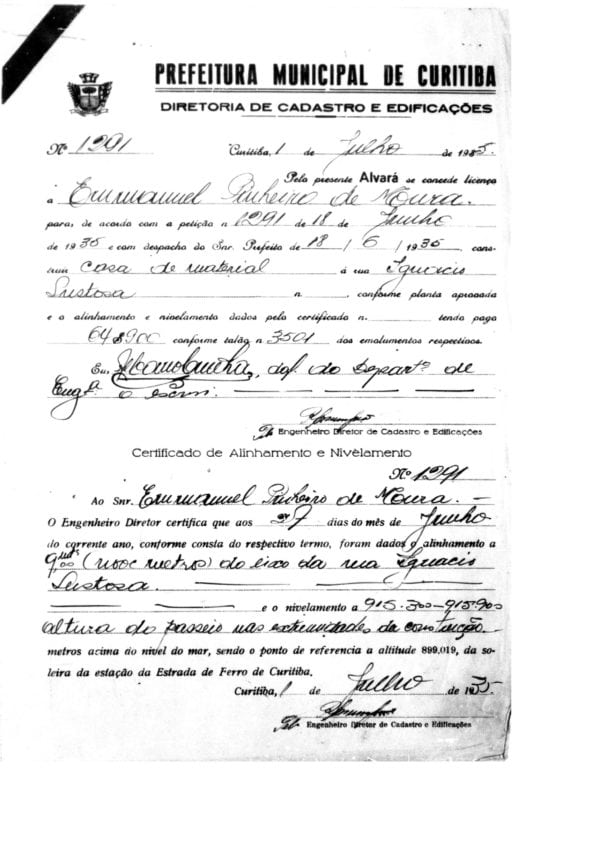 PREFEITURA MUNICIPAL DE CURITIBA
DIRETORIA DE CADASTRO E EDIFICAÇÕES
Nº 1291 Curitiba, 1 de Julho de 1935.
Pelo presente Alvará se concede licença
a Emmanuel Pinheiro de Moura.
para, de acordo com a petição n 1291 de 18 de Junho
de 1935 e com despacho do Snr. Prefeito de 18 / 6 / 1935, cons-
truir casa de material á rua Ignacio
Lustosa n , conforme planta aprovada
e o alinhamento e nivelamento dados pelo certificado n. tendo pago
64$900 conforme talão n 3501 dos emolumentos respectivos.
Eu, do Departº de
Engª o escrevi.
Engenheiro Diretor de Cadastro e Edificações
Certificado de Alinhamento e Nivelamento
Nº 1291
Ao Snr. Emmanuel Pinheiro de Moura.
O Engenheiro Diretor certifica que aos 27 dias do mês de Junho
do corrente ano, conforme consta do respectivo termo, foram dados o alinhamento a
9,00 mts (nove metros) do eixo da rua Ignacio
Lustosa.
e o nivelamento a 915.300-915.900
altura do passeio nas extremidades da construção
metros acima do nivel do mar, sendo o ponto de referencia a altitude 899,019, da so-
leira da estação da Estrada de Ferro de Curitiba.
Curitiba, 1 de Julho de 1935.
Engenheiro Diretor de Cadastro e Edificações